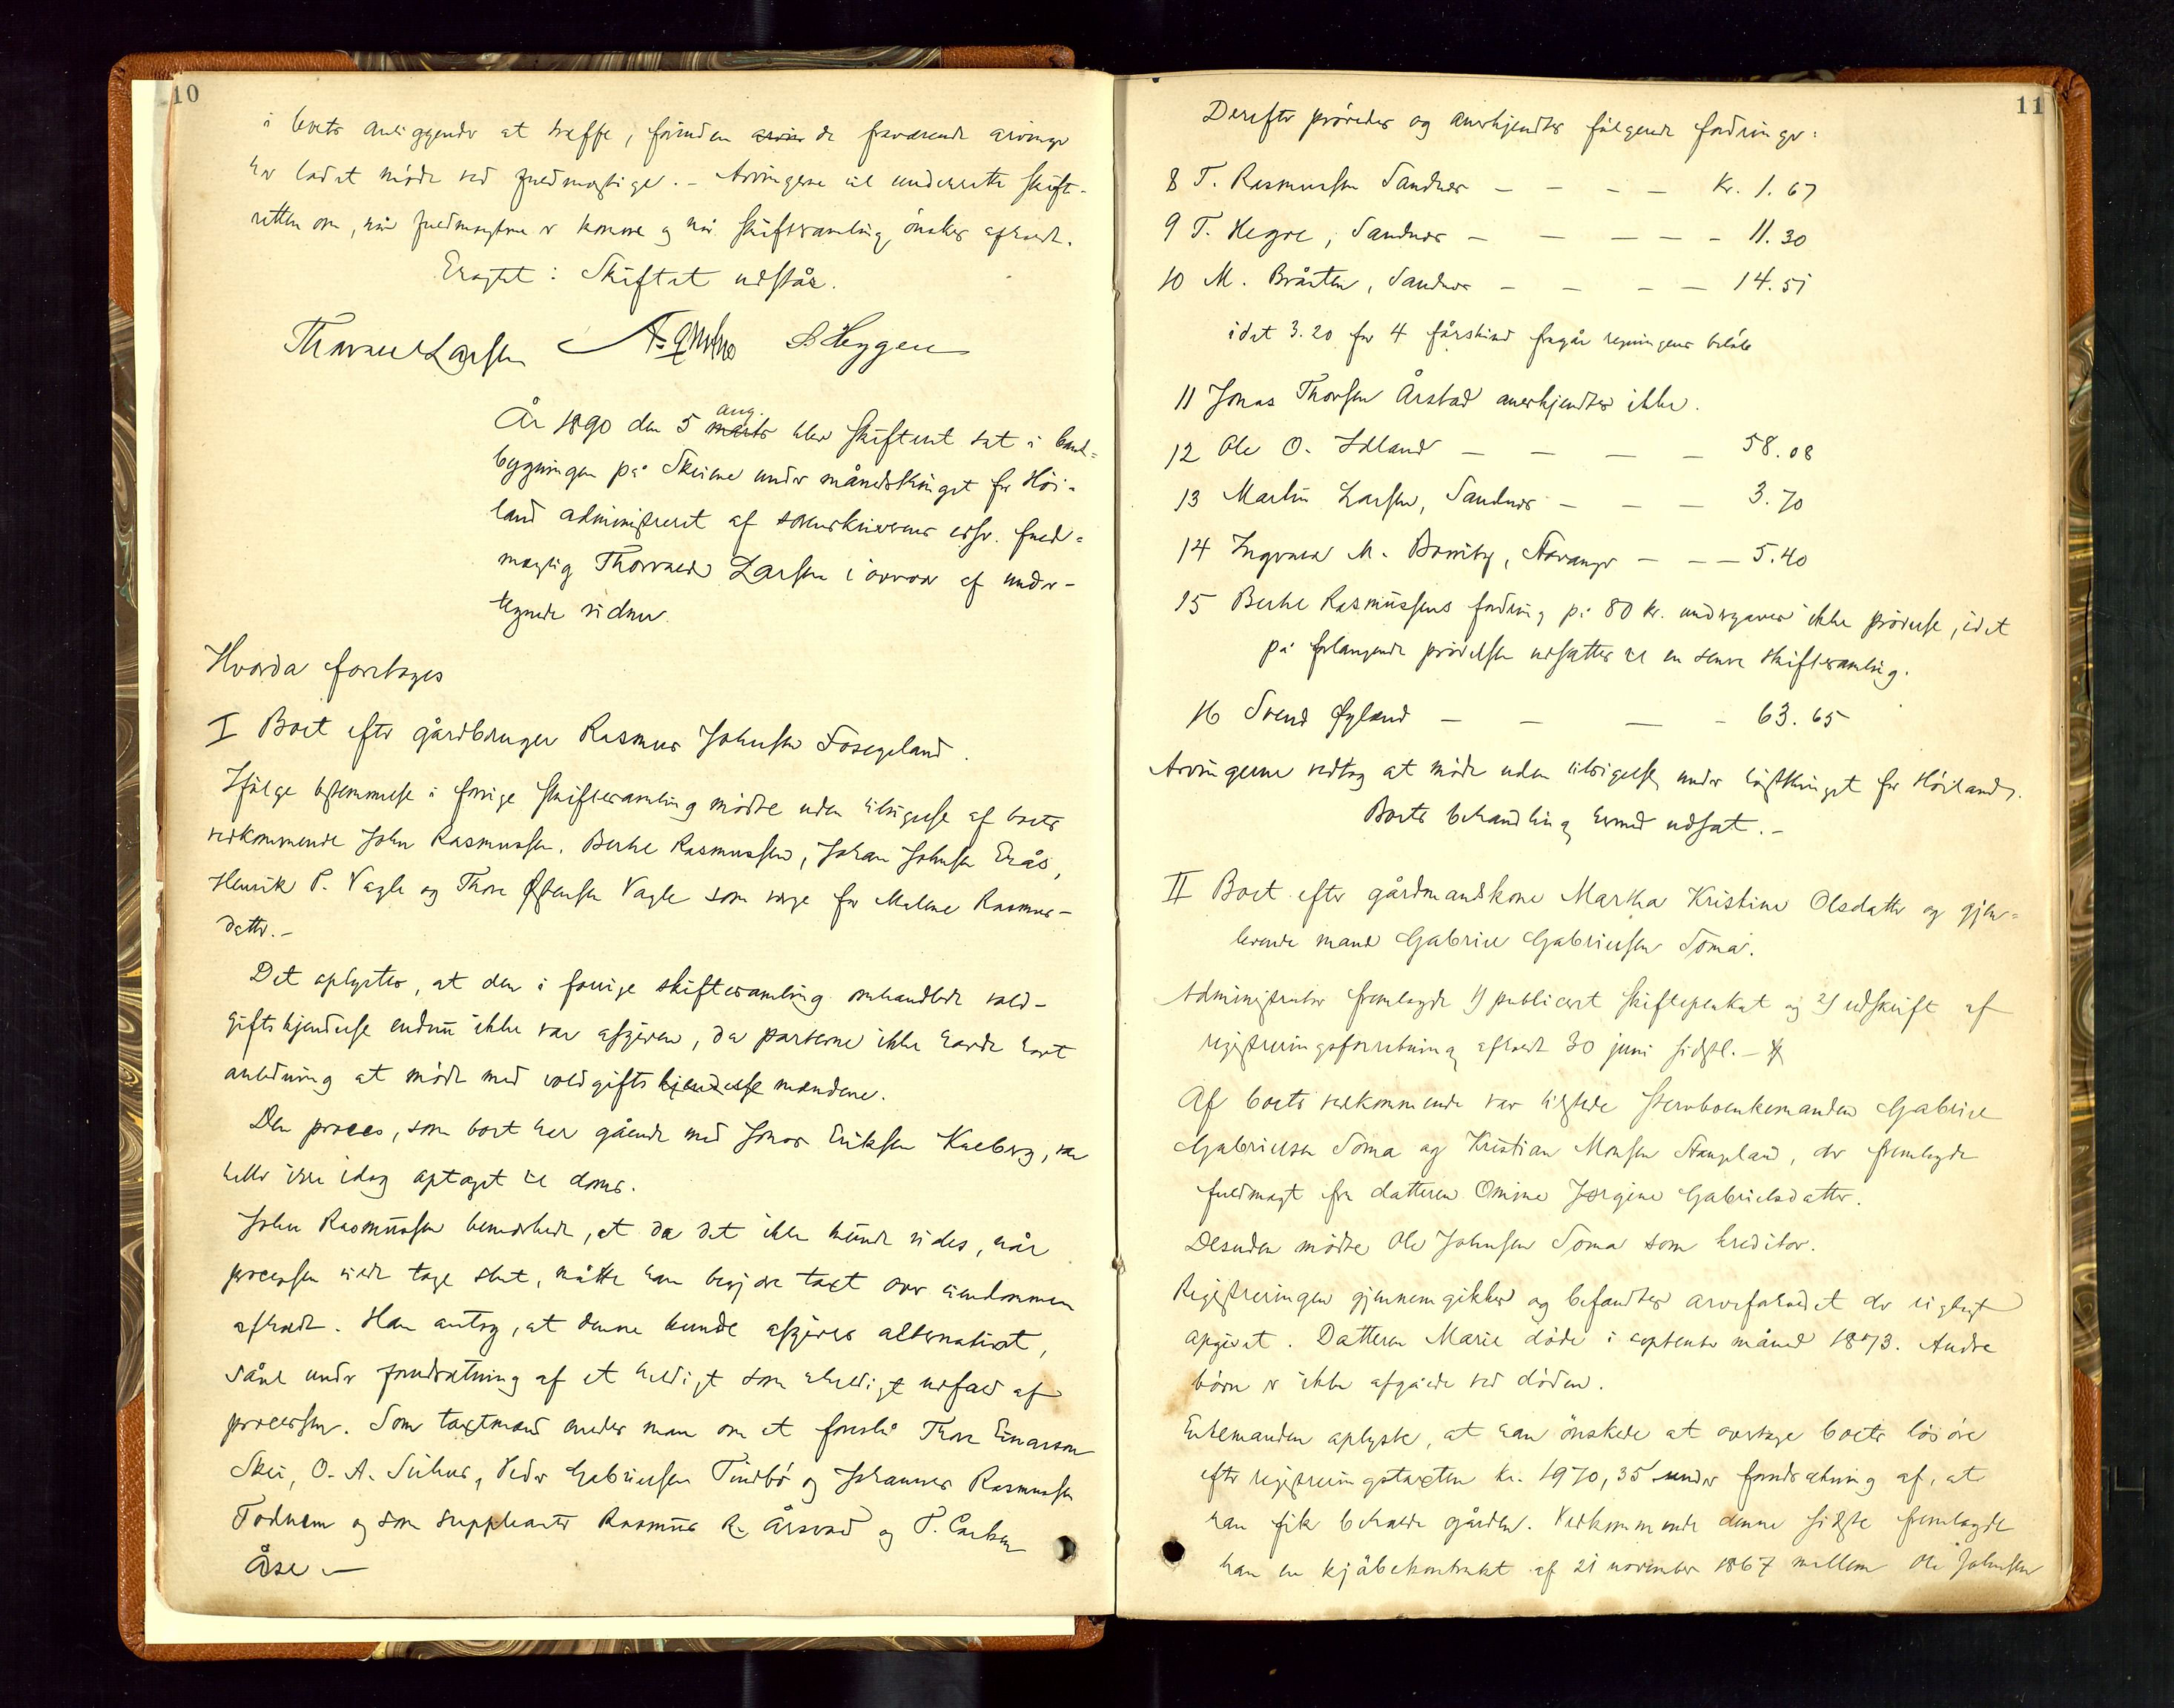 10
i boets anliggender at træffe, førinden arvin de fraværende arvinger
har ladet møde ved fuldmægtiger. - Arvingerne vil underrette skift-
retten om, når fuldmagterne er komne og når skiftesamling ønskes afholdt.
Eragtet: Skiftet udstår.
Thorvald Larsen B Heggen
År 1890 den 5 marts aug. blev skifteret sat i bank-
bygningen på Skeiene under månedsthinget for Høi-
land administreret af sorenskriverens edsv. fuld-
mægtig Thorvald Larsen i overvær af under-
tegnede vidner.
Hvorda foretoges
I Boet efter gårdbruger Rasmus Johnsen Fosegeland.
Ifølge bestemmelse i forrige skiftesamling mødte uden tilsigelse af boets
vedkommende John Rasmussen, Berthe Rasmussen, Johan Johnsen Erås,
Henrik P. Vagle og Thore Østensen Vagle som verge for Malene Rasmus-
datter. -
Det oplystes, at den i forrige skiftesamling omhandlede vold-
giftskjendelse endnu ikke var afgiven, da parterne ikke havde havt
anledning at møde med voldgiftskjendelse mændene.
Den proces, som boet har gående med Jonas Eriksen Kalberg, var
heller ikke idag optaget til doms.
John Rasmussen bemærkede, at da det ikke kunde vides, når
processen vilde tage slut, måtte han begjære taxt over eiendommen
afholdt. Han antog, at denne kunde afgives alternativt,
såvel under forudsætning af et heldigt som uheldigt udfald af
processen. Som taxtmænd enedes man om at foreslå Thore Einarson
Skei, O. A. Peder Gabrielsen Tindbø og Johannes Rasmussen
Fodnem og som suppleanter Rasmus R. Årsvad og P. Carlsen
Åse -
11
Derefter prøvedes og anerkjendtes følgende fordringer:
8 T. Rasmussen Sandnes - - - - Kr. 1.67
9 T. Hegre, Sandnes - - - - - 11.30
10 M. Bråten, Sandnes - - - - 14.51
idet 3.20 for 4 fårskind fragår regningens beløb
11 Jonas Thorsen Årstad anerkjendtes ikke.
12 Ole O. Idland - - - - 58.08
13 Martin Larsen, Sandnes - - - 3.70
14 Ingvald M. Stavanger - - - 5.40
15 Berthe Rasmussens fordring på 80 kr. undergaves ikke prøvelse, idet
på forlangende prøvelsen udsattes til en senere skiftesamling.
16 Svend Øgland - - - - 63.65
Arvingerne vedtog at møde uden tilsigelse under høstthinget for Høiland.
Boets behandling hermed udsat. -
II Boet efter gårdmandskone Martha Kristine Olsdatter og gjen-
levende mand Gabriel Gabrielsen Soma.
Administrator fremlagde 1) publiceret skifteplakat og 2) udskrift af
registreringsforretning afholdt 30 juni sidstl. -
Af boets vedkommende var tilstede stervboenkemanden Gabriel
Gabrielsen Soma og Kristian Monsen Stangeland, der fremlagde
fuldmagt fra datteren Omine Jørgine Gabrielsdatter.
Desuden mødte Ole Johnsen Soma som kreditor.
Registreringen gjennemgikkes og befandtes arveforholdet der rigtigt
opgivet. Datteren Marie døde i september måned 1873. Andre
børn er ikke afgåede ved døden.
Enkemanden oplyste, at han ønskede at overtage boets løsøre
efter registreringstaxten kr. 1970,35 under forudsætning af, at
han fik beholde gården. Vedkommende denne sidste fremlagde
han en kjøbekontrakt af 21 november 1867 mellem Ole Johnsen